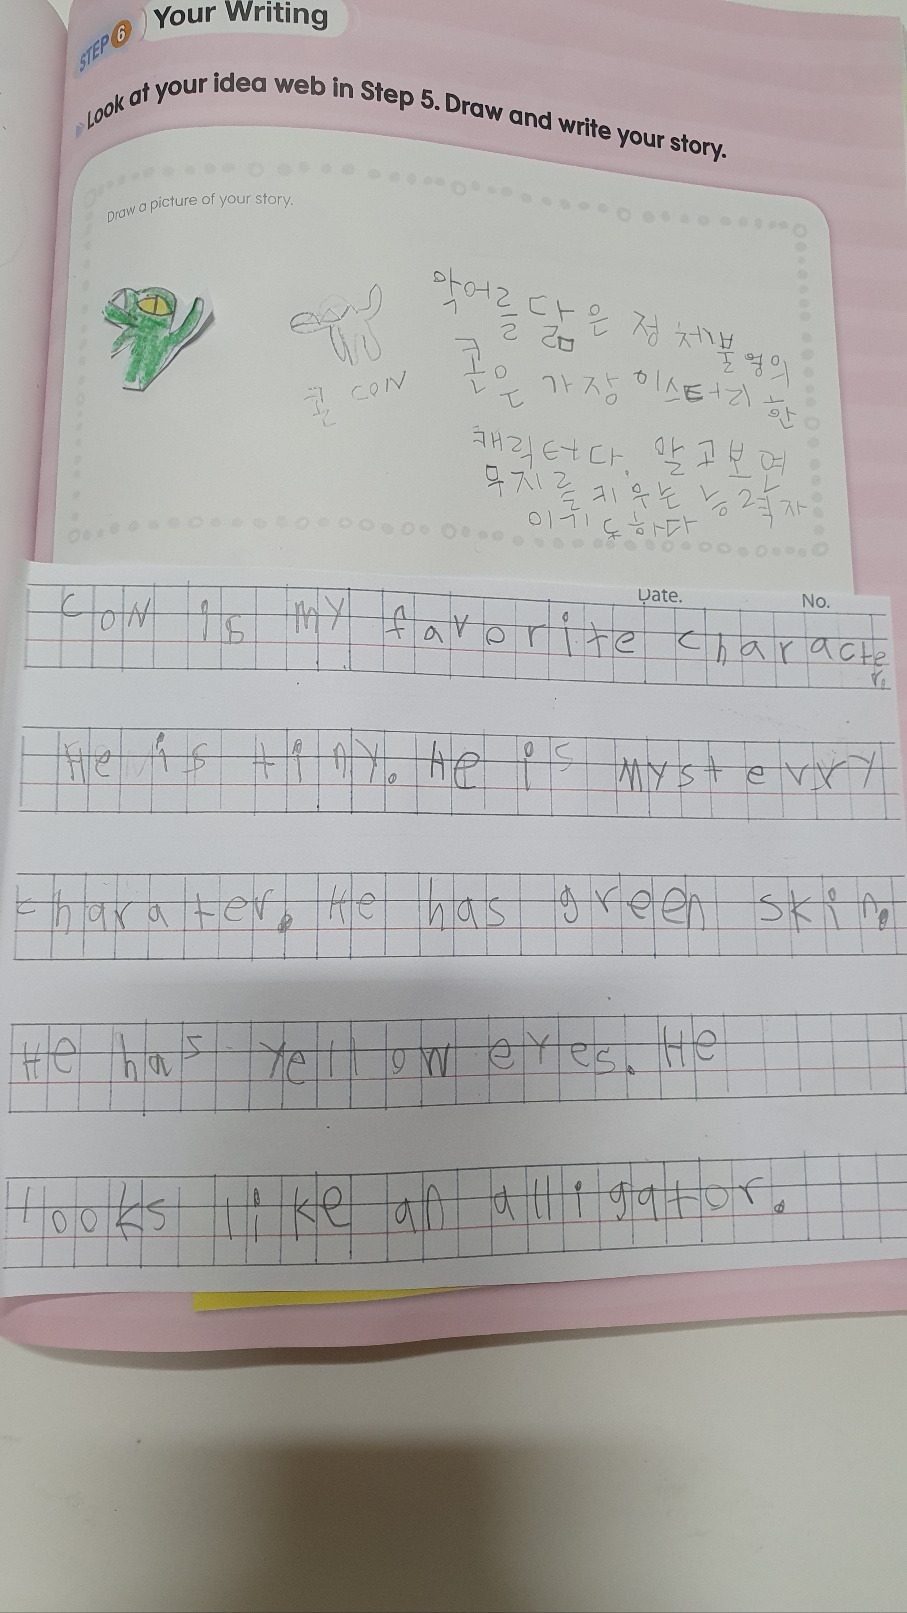 STEP 6 Your Writing
Look at your idea web in Step 5. Draw and write your story.
Draw a picture of your story.
악어를 닮은 정체불명의
콘은 가장 미스터리한
캐릭터다. 알고보면
무지를 키우는 능력자
이기도하다
콘 CON
Date. No.
CON is MY favorite character.
He is tiny. He is Mysterry
charater. He has green skin.
He has Yellow eyes. He
looks like an alligator.